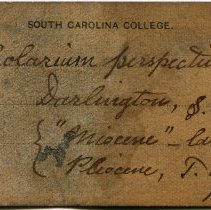 SOUTH CAROLINA COLLEGE.
olarium perspectiv
Darlington, S.
{ "Miocene" – la
{ Pliocene, T.